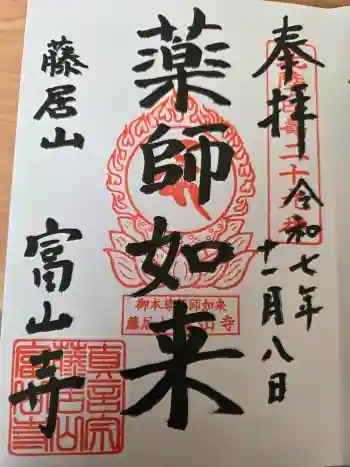 奉拝
令和七年
十一月八日
薬師如来
藤居山
富山寺
御本尊薬師如来
藤居山富山寺
真言宗
藤居山
富山寺